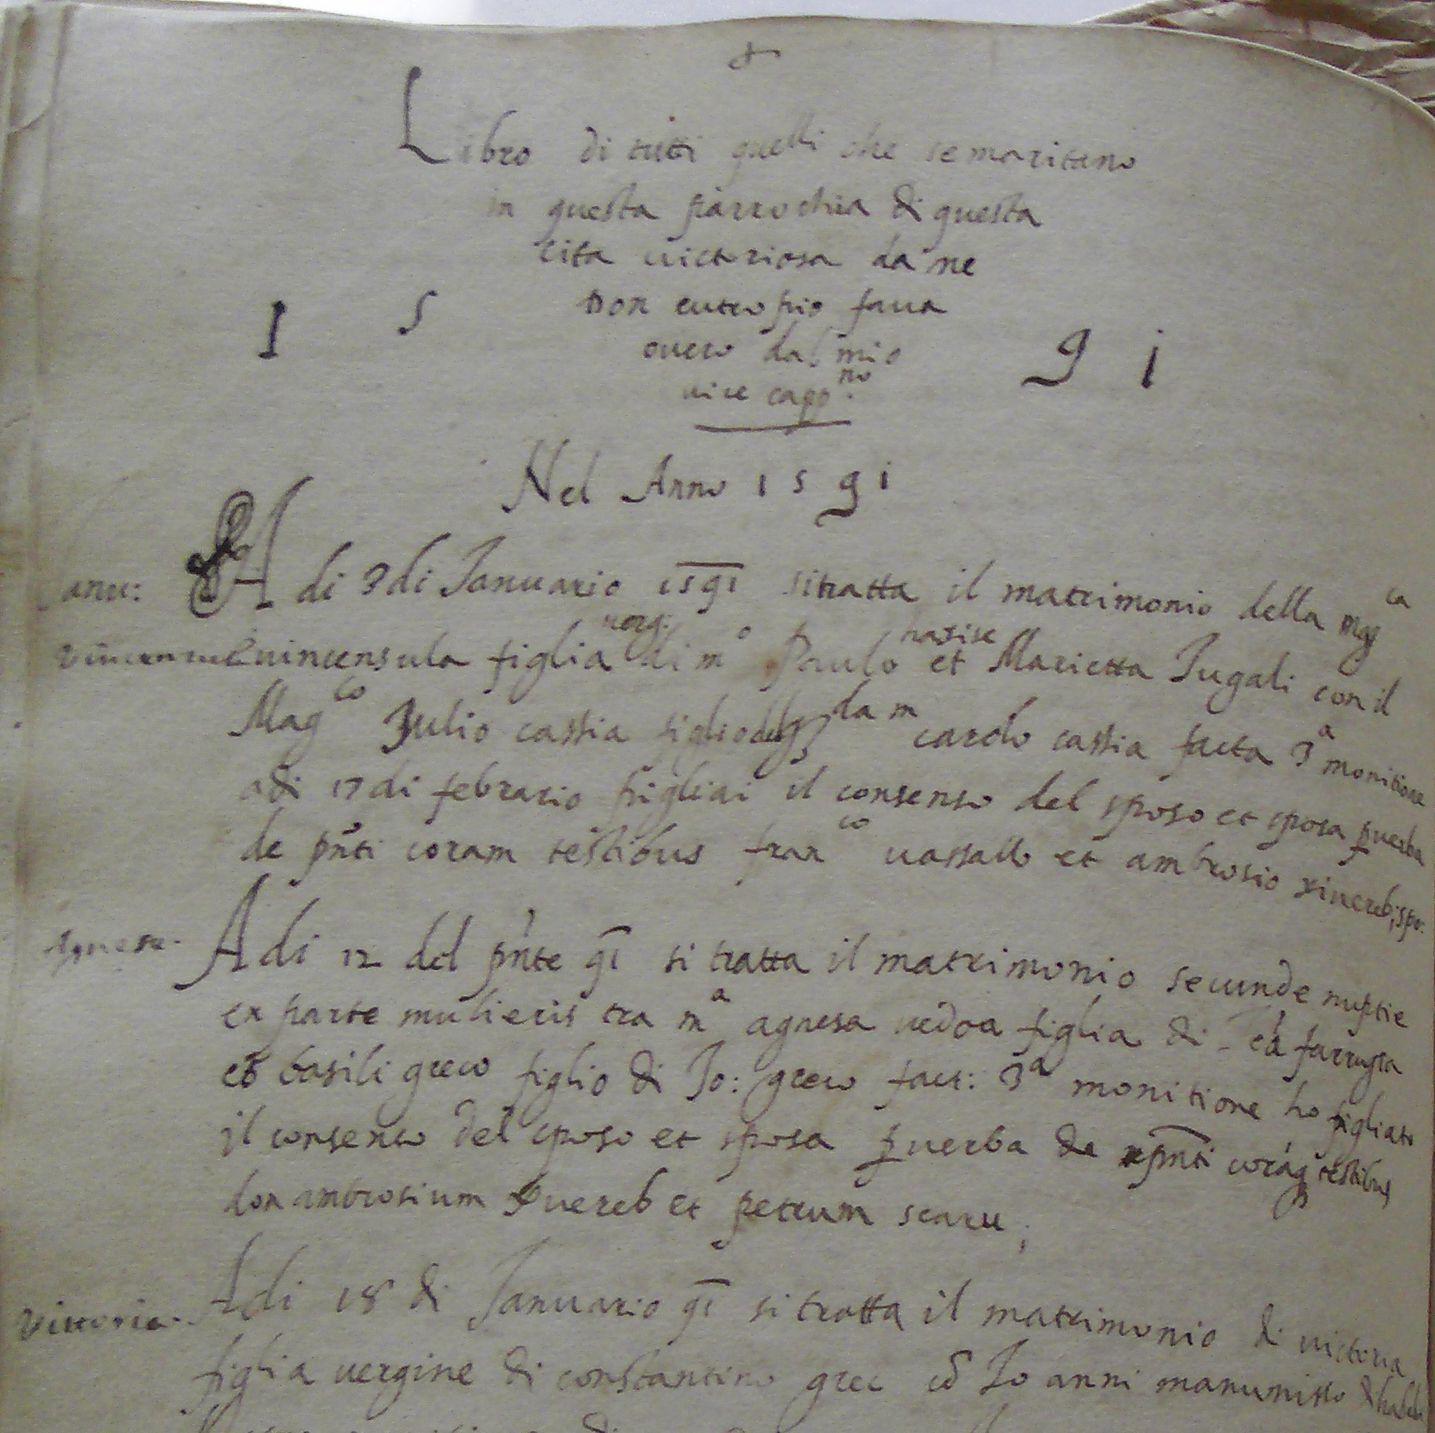 Libro di tutti quelli che se maritano
in questa parrochia di questa
cita victoriosa da me
Don eutropio fava
overo dal mio
vice capp.no
1 5 9 1
Nel Anno 1591
Janu: A di 9 di Januario 1591 si tratta il matrimonio della mag ca
vincensula figlia verg: di m o Paulo hasise et Marietta Jugali con il
Mag co Julio cassia figlio del da m carolo cassia facta 3 a monitione
adi 17 di febrario pigliai il consenso del sposo et sposa p verba
de pnti coram testibus fran co vassallo et ambrosio
Agnesa. A di 12 del pnte 91 si tratta il matrimonio secunde nuptie
ex parte mulieris tra m a agnesa vedoa figlia di farrugia
et basili greco figlio di Jo: greco fact: 3 a monitione ho pigliato
il consenso del sposo et sposa p verba de pnti testibus
don ambrosium et petrum
Vittoria. Adi 18 di Januario 91 si tratta il matrimonio di victoria
figlia vergine di constantino grec cō Jo anni manumisso